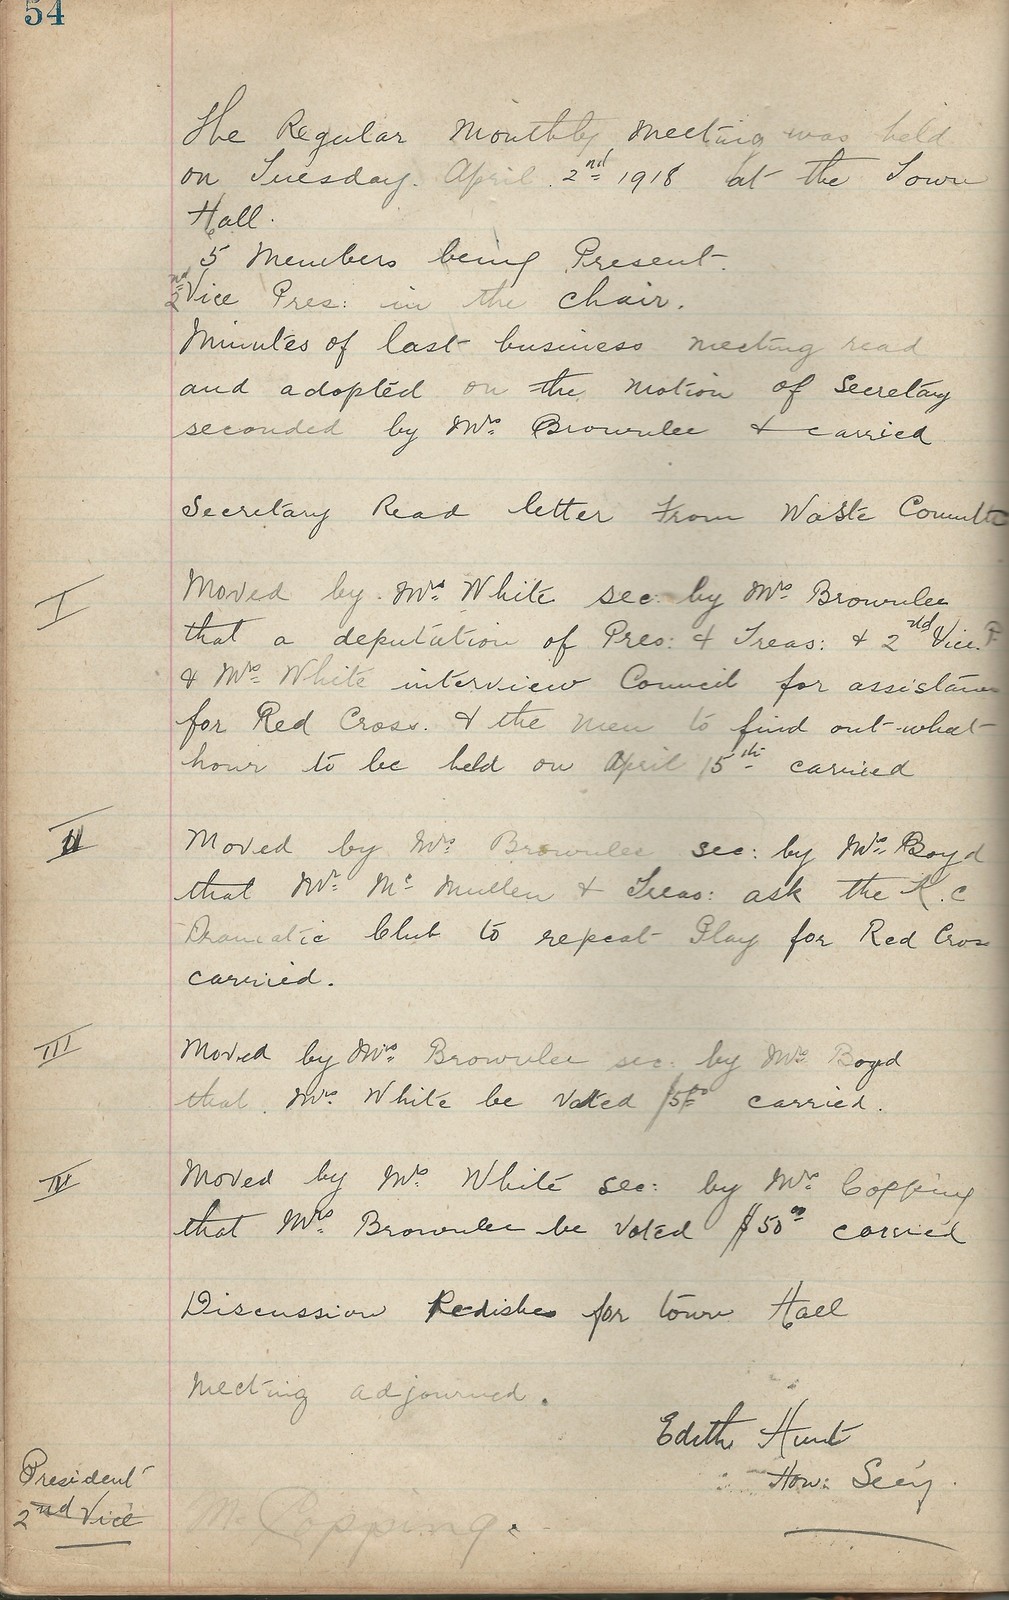 54
The Regular Monthly Meeting was held
on Tuesday. April 2nd 1918 at the Town
Hall.
5 Members being Present.
2nd Vice Pres: in the chair.
Minutes of last business meeting read
and adopted on the motion of Secretary
seconded by Mrs Brownlee & carried
Secretary Read letter from Waste Committe
I Moved by Mrs White sec: by Mrs Brownlee
that a deputation of Pres: & Treas: & 2nd Vice. P
& Mrs White interview Council for assistance
for Red Cross. & the men to find out what
hour to be held on April 15th carried
II Moved by Mrs Brownlee sec: by Mrs Boyd
that Mrs Mc Mullen & Treas: ask the R.C
Dramatic Club to repeat Play for Red Cross
carried.
III Moved by Mrs Brownlee sec: by Mrs Boyd
that Mrs White be voted carried.
IV Moved by Mrs White sec: by Mrs Copping
that Mrs Brownlee be voted $50oo carried
Discussion Re dishes for town Hall
Meeting adjourned.
Edith Hunt
Hon: Sec'y.
President
2nd Vice
M. Copping.